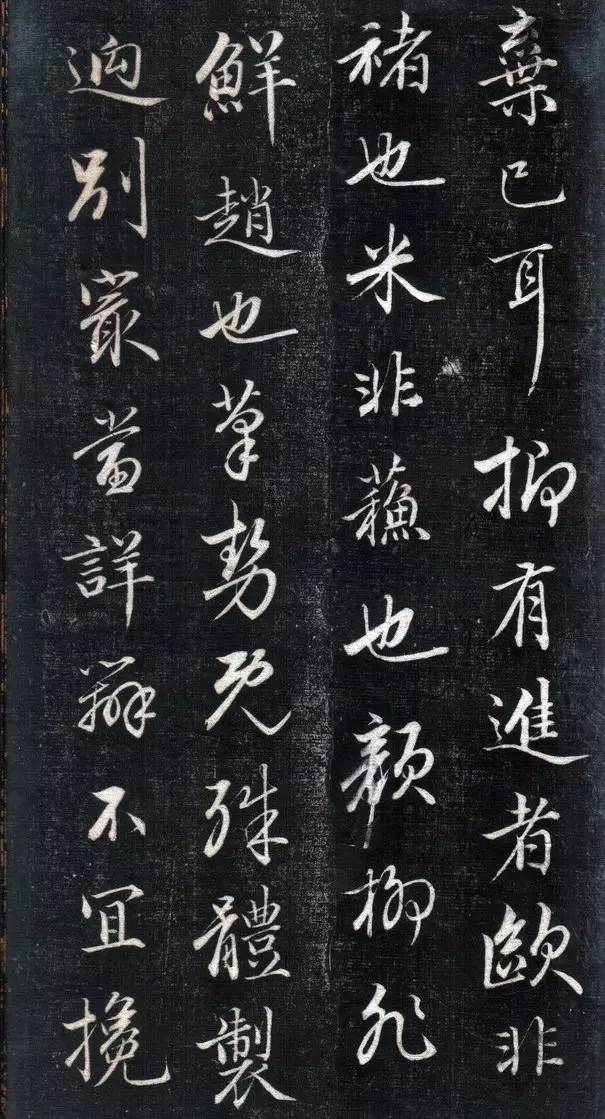 棄已耳抑有進者歐非
褚也米非蘓也顏柳非
鮮趙也筆勢既殊體製
迥別冣當詳辯不宜攙